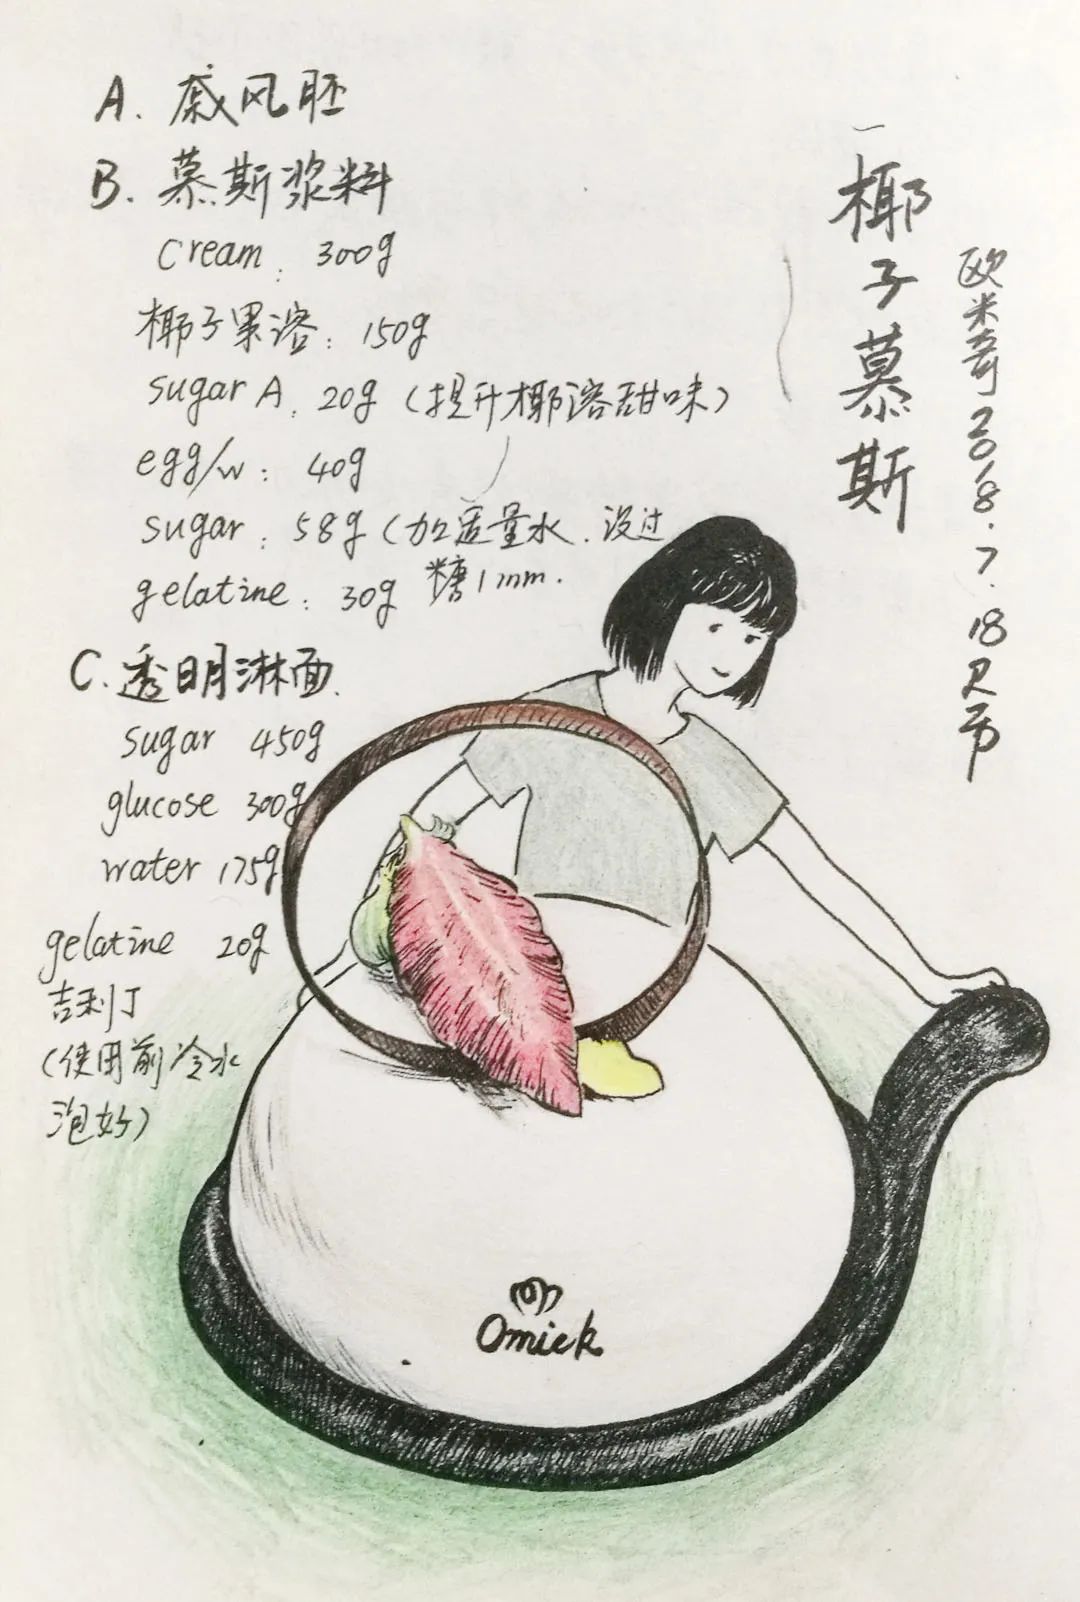 A. 戚风胚
B. 慕斯浆料
cream: 300g
椰子果溶: 150g
sugar A: 20g (提升椰溶甜味)
egg/w: 40g
sugar: 58g (加适量水.没过
糖1mm.
gelatine: 30g
C. 透明淋面.
sugar 450g
glucose 300g
water 175g
gelatine 20g
吉利丁
(使用前冷水
泡好)
椰子慕斯
欧米奇2018.7.18
Omick